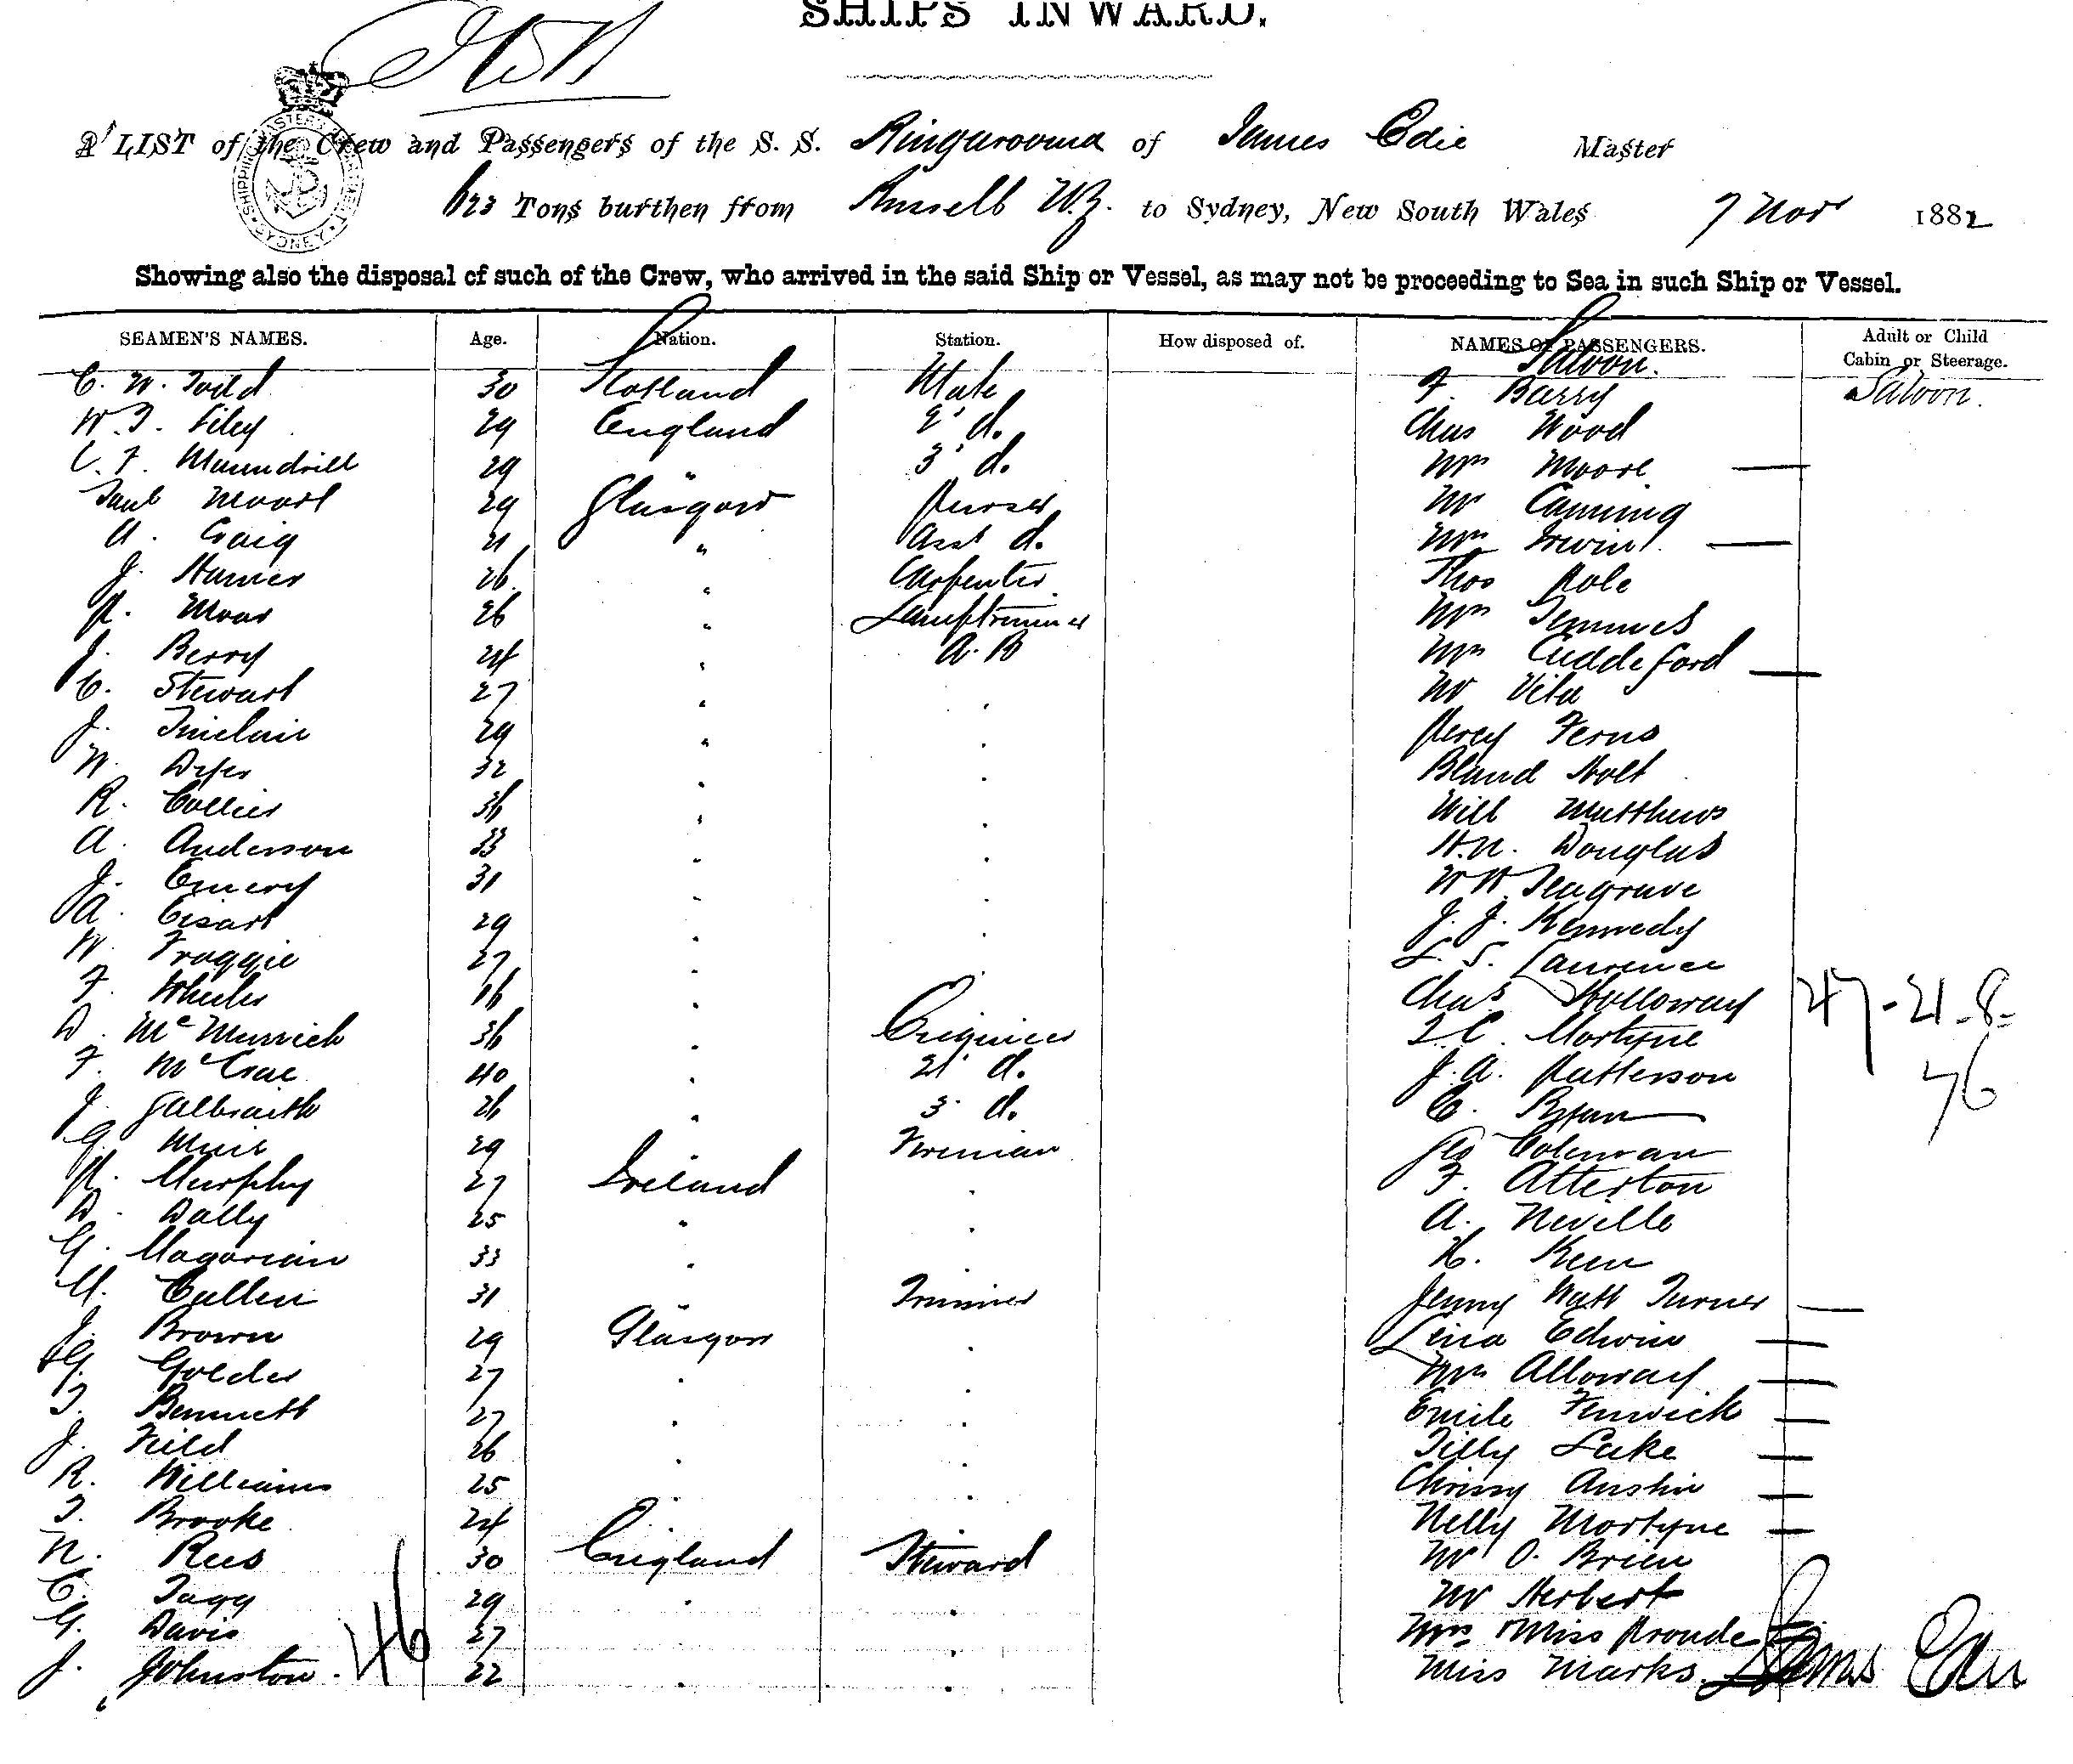 SHIPS INWARD.
A LIST of the Crew and Passengers of the S. S. Ringarooma of James Edie Master
623 Tons burthen from Russell N.Z. to Sydney, New South Wales 7 Nov 1882
Showing also the disposal of such of the Crew, who arrived in the said Ship or Vessel, as may not be proceeding to Sea in such Ship or Vessel.
SEAMEN'S NAMES. Age. Nation. Station. How disposed of. NAMES OF PASSENGERS. Adult or Child
Cabin or Steerage.
Saloon.
C. W. Todd 30 Scotland Mate F. Barry Saloon.
W. T. Filey 29 England 2 d. Chas Wood
C. F. Maundrill 29 " 3 d. Mrs Moore —
29 Glasgow Purser Mr Canning
A. Craig 21 " Asst d. Mrs Irwin —
J. Hamer 26 " Carpenter Thos Pole
P. Moar 26 " Lamptrimmer Mrs Jemmes
J. Berry 24 " A. B Mrs Cuddeford —
C. Stewart 27 " " Mr Vita
J. Sinclair 29 " " Percy Ferns
W. Dyer 32 " " Bland Holt
R. Collier 36 " " Will Matthews
A. Anderson 33 " " H.N. Douglas
J. Emery 31 " " W H Seagrave
A. 29 " " J. J. Kennedy
W. Froggie 27 " " L. S. Laurence
F. Wheeler 16 " Chas Holloway 47-21-8-
D. McMurrich 36 " Engineer Mortyne
F. McCrae 40 " 2 d. J. A. Patterson 76
J. Galbraith 26 " 3 d. C. Ryan
G. Muir 29 Fireman Geo Coleman
P. Murphy 27 Ireland " F. Atterton
D. Dally 25 " " A. Neville
G. Magorian 33 " " H. Keen
M. Cullen 31 " Trimmer Jenny Watt Turner —
J. Brown 29 Glasgow " Lina Edwin —
G. Golder 27 " " Mrs Alloway —
T. Bennett 27 " " Emile Fenwick —
J. Field 26 " " Tilly Lake —
R. Williams 25 " " Chrissy Austin —
T. Brooke 24 Nelly Mortyne —
N. Rees 30 England Steward Mr O. Brien
C. Tagg 29 " " Mr Herbert
G. Davis 27 " Mrs & Miss Proude
J. Johnston. 46 22 " " Miss Marks James Edie